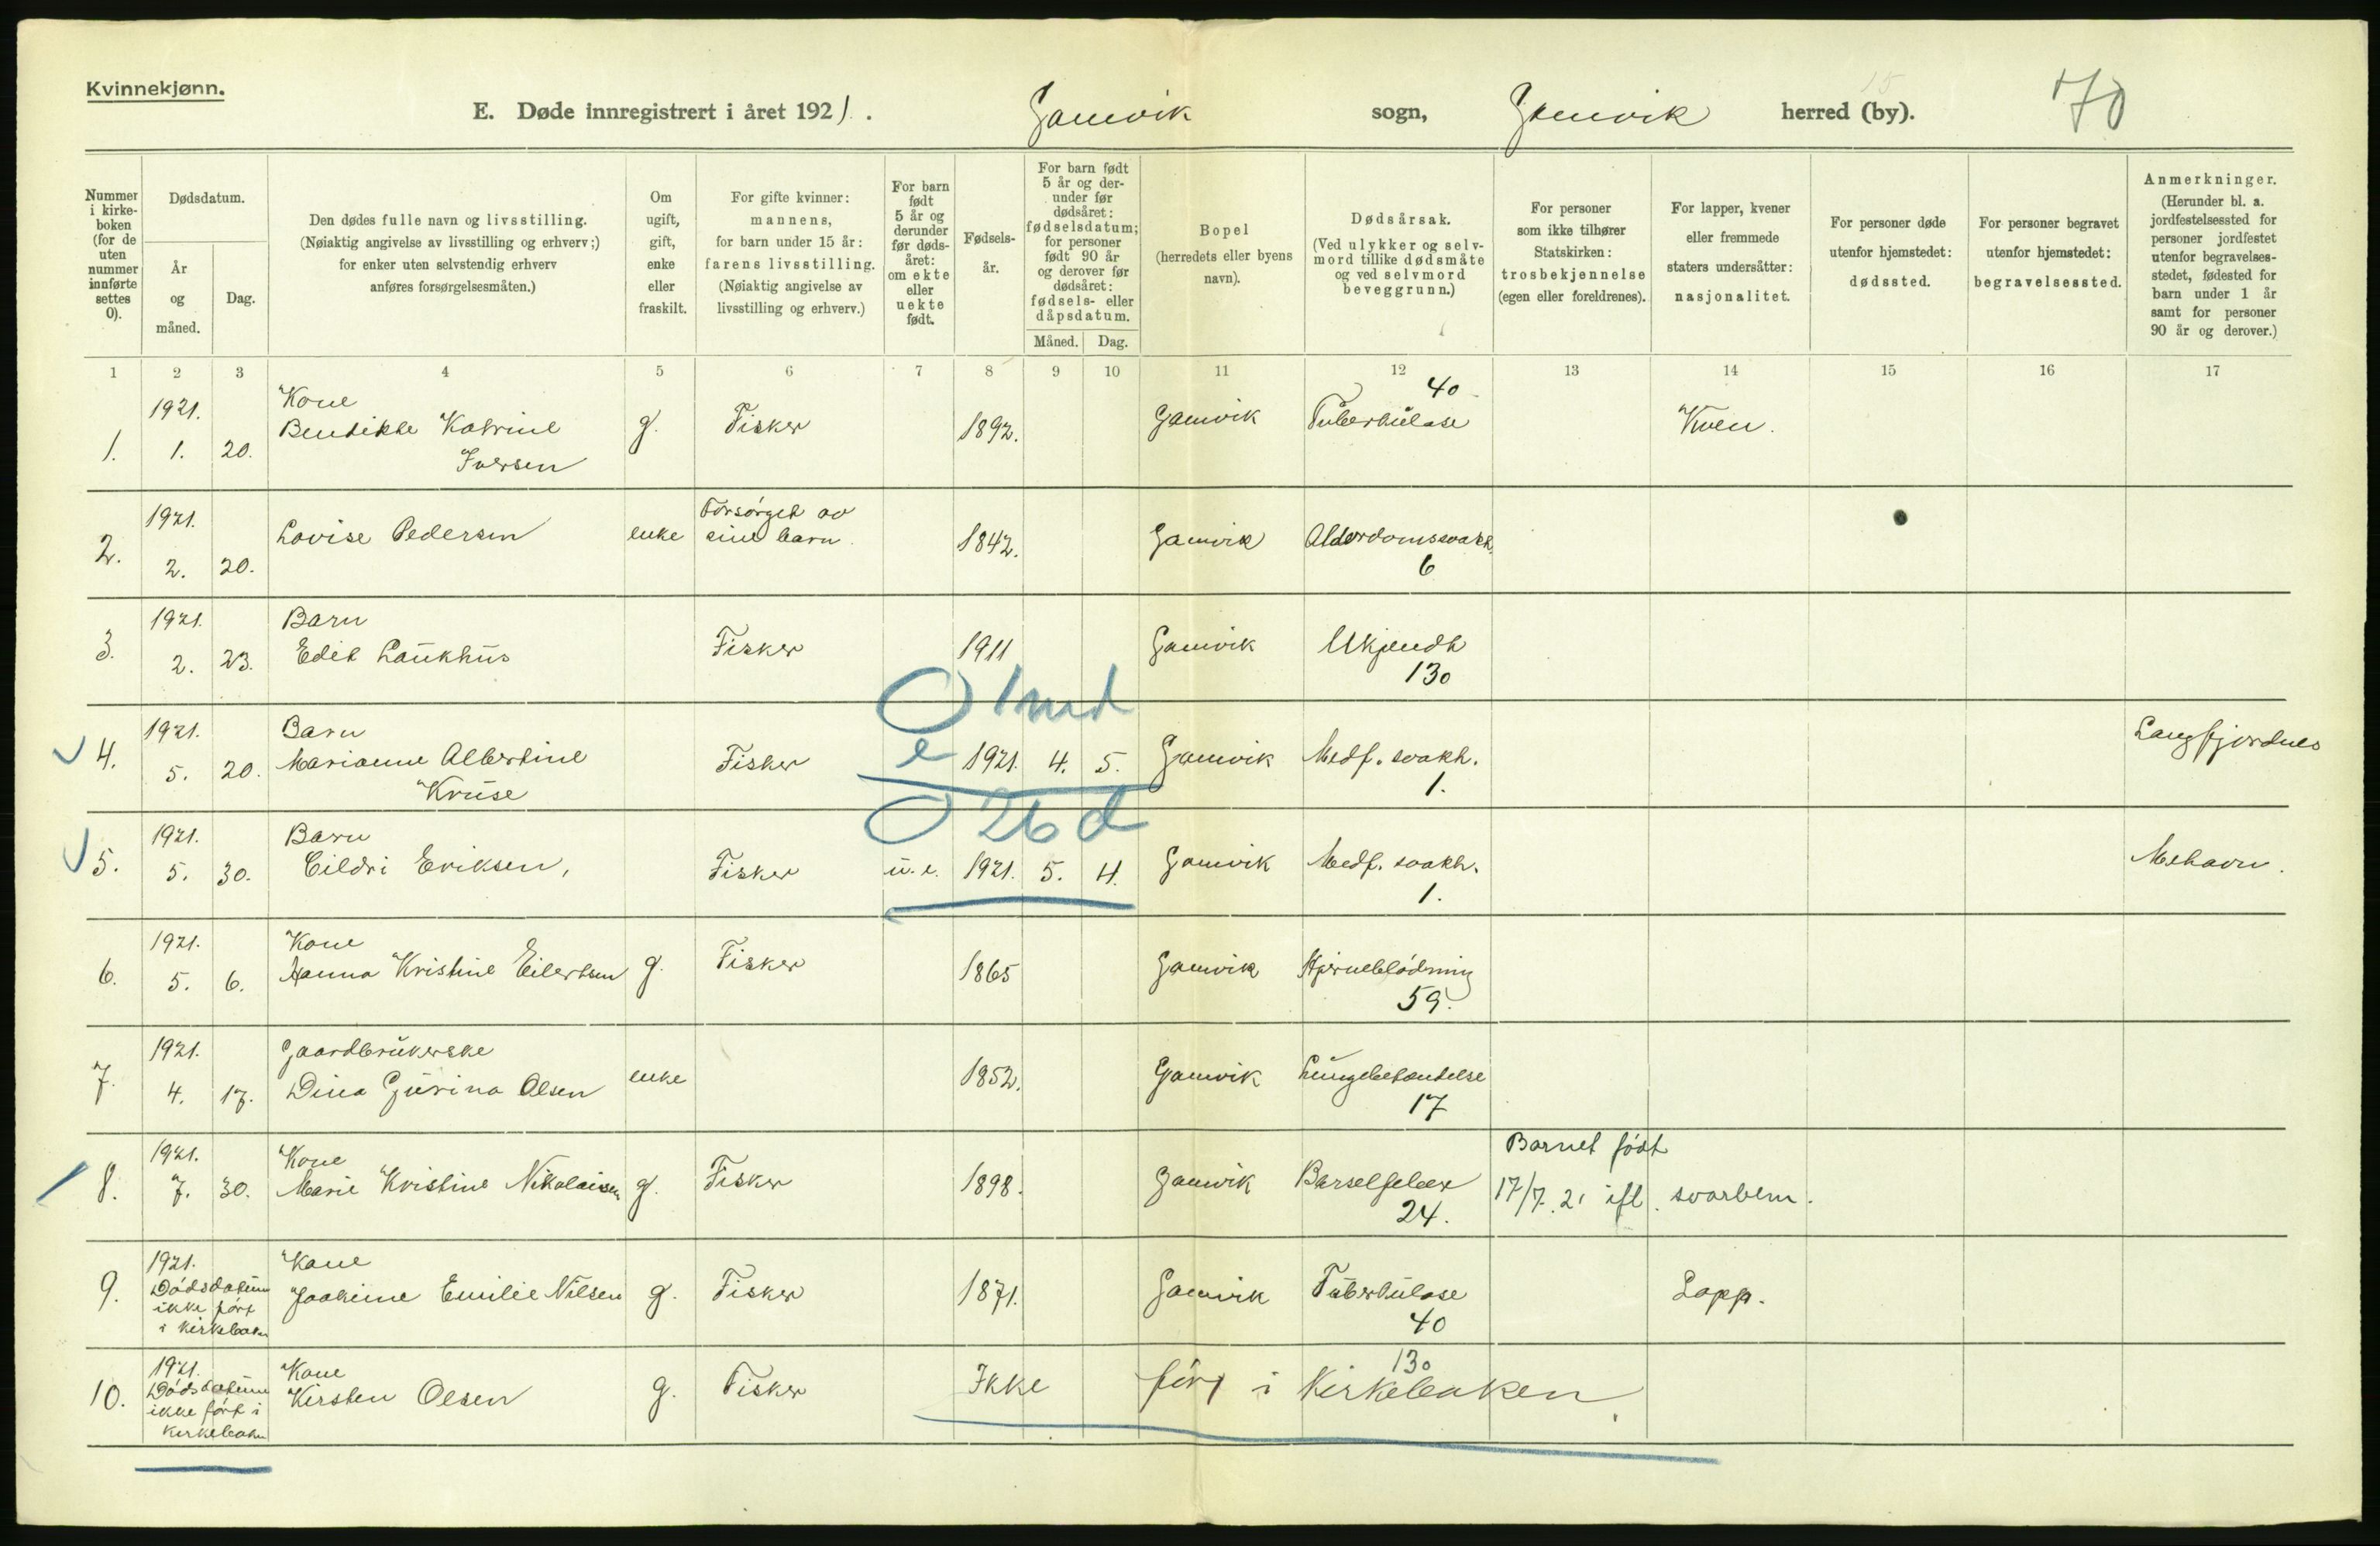 Kvinnekjønn.
E. Døde innregistrert i året 1921. Gamvik sogn, Gamvik herred (by). 15 70
Nummer i kirke- boken (for de uten nummer innførte settes 0).
Dødsdatum.
År og måned.
Dag.
Den dødes fulle navn og livsstilling.
(Nøiaktig angivelse av livsstilling og erhverv;)
for enker uten selvstendig erhverv
anføres forsørgelsesmåten.)
Om ugift, gift, enke eller fraskilt.
For gifte kvinner:
mannens,
for barn under 15 år:
farens livsstilling.
(Nøiaktig angivelse av
livsstilling og erhverv.)
For barn født 5 år og derunder før døds- året: om ekte eller uekte født.
Fødsels- år.
For barn født
5 år og der-
under før
dødsåret:
fødselsdatum;
for personer
født 90 år
og derover før
dødsåret:
fødsels- eller
dåpsdatum.
Måned. Dag.
Bopel
(herredets eller byens
navn).
Dødsårsak.
(Ved ulykker og selv-
mord tillike dødsmåte
og ved selvmord
beveggrunn.)
For personer
som ikke tilhører
Statskirken:
trosbekjennelse
(egen eller foreldrenes).
For lapper, kvener
eller fremmede
staters undersåtter:
nasjonalitet.
For personer døde
utenfor hjemstedet:
dødssted.
For personer begravet
utenfor hjemstedet:
begravelsessted.
Anmerkninger.
(Herunder bl. a.
jordfestelsessted for
personer jordfestet
utenfor begravelses-
stedet, fødested for
barn under 1 år
samt for personer
90 år og derover.)
1 2 3 4 5 6 7 8 9 10 11 12 13 14 15 16 17
1921. Kone 40
1. 1. 20. Bendikte Katrine g. Fisker 1892. Gamvik Tuberkulose Kven.
Iversen
1921. Forsørget av
2. 2. 20. Lovise Pedersen enke sine barn. 1842. Gamvik Alderdomssvakh.
6
1921. Barn
3. 2. 23. Edit Laukhus Fisker 1911 Gamvik Ukjendt
130
0 1 md
1921. Barn Langfjordnes
4. 5. 20. Marianne Albertine Fisker e 1921. 4. 5. Gamvik Medf. svakh.
Kruse 1.
0 26 d
1921. Barn
5. 5. 30. Cildri Eriksen, Fisker u.e. 1921. 5. 4. Gamvik Medf. svakh. Mehavn.
1.
1921. Kone
6. 5. 6. Hanna Kristine Eilertsen g. Fisker 1865 Gamvik Hjerneblødning
59.
1921. Gaardbrukerske
7. 4. 17. Dina Gurina Olsen enke 1852. Gamvik Lungebetændelse
17
1921. Kone Barnet født
8. 7. 30. Marie Kristine Nikolaisen g. Fisker 1898. Gamvik Barselfeber 17/7. 21 ifl. svarbem.
24.
1921. Kone
9. Dødsdatum ikke ført i kirkeboken Joakime Emilie Nilsen g. Fisker 1871. Gamvik Tuberkulose Lapp.
40
1921. Kone 130
10. Dødsdatum ikke ført i kirkeboken Kirsten Olsen g. Fisker Ikke ført i Kirkeboken.